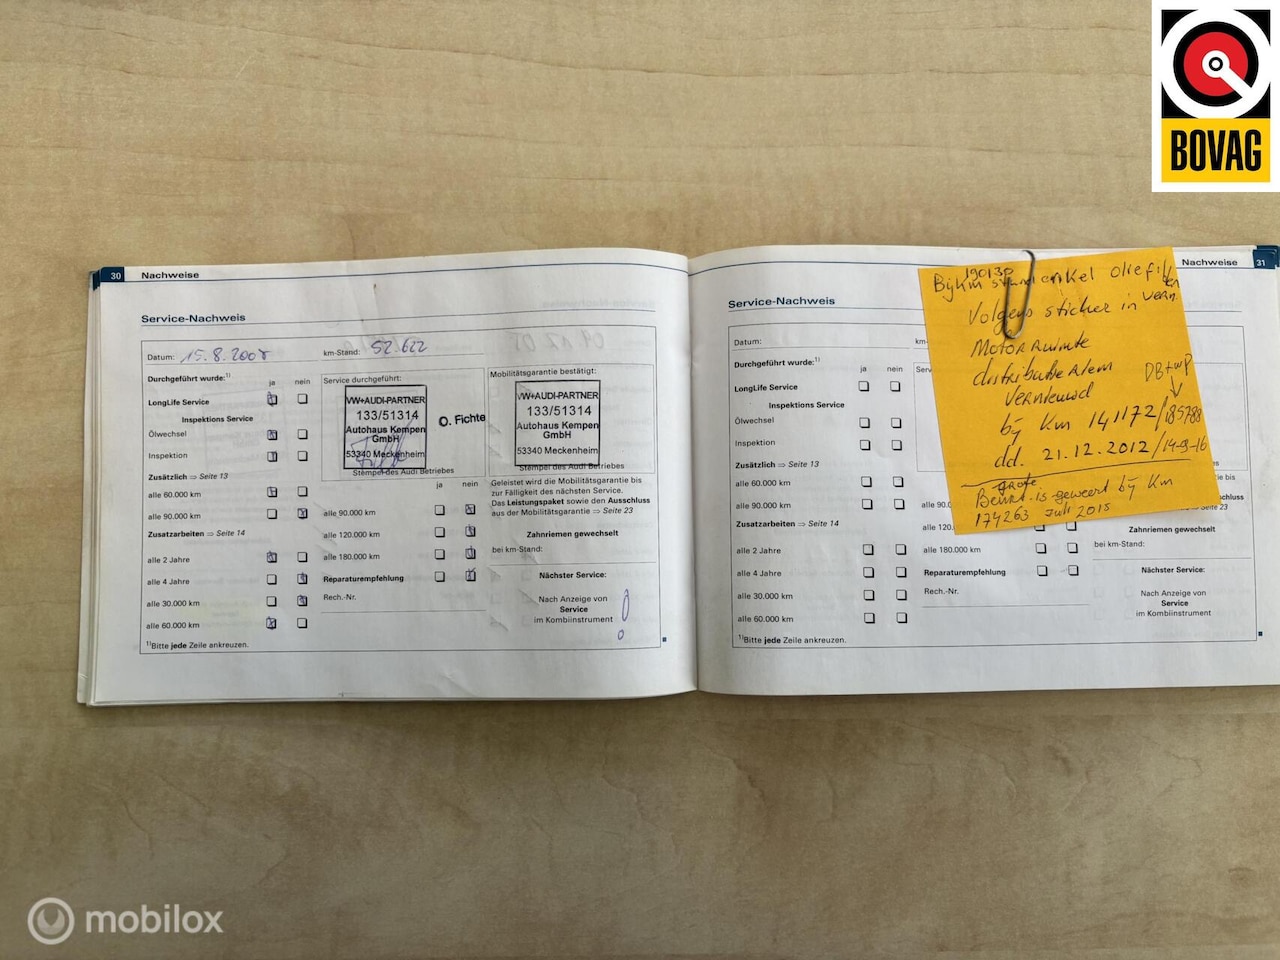 BOVAG
30 Nachweise
Service-Nachweis
Datum: 15.8.2007
km-Stand: 52.622
Durchgeführt wurde:¹⁾
ja nein
LongLife Service
Inspektions Service
Ölwechsel
Inspektion
Zusätzlich ⇒ Seite 13
alle 60.000 km
alle 90.000 km
Zusatzarbeiten ⇒ Seite 14
alle 2 Jahre
alle 4 Jahre
alle 30.000 km
alle 60.000 km
¹⁾Bitte jede Zeile ankreuzen.
Service durchgeführt:
VW+AUDI-PARTNER
133/51314
Autohaus Kempen
GmbH
53340 Meckenheim
O. Fichte
Stempel des Audi Betriebes
ja nein
alle 90.000 km
alle 120.000 km
alle 180.000 km
Reparaturempfehlung
Rech.-Nr.
Mobilitätsgarantie bestätigt:
VW+AUDI-PARTNER
133/51314
Autohaus Kempen
GmbH
53340 Meckenheim
Stempel des Audi Betriebes
Geleistet wird die Mobilitätsgarantie bis
zur Fälligkeit des nächsten Service.
Das Leistungspaket sowie den Ausschluss
aus der Mobilitätsgarantie ⇒ Seite 23
Zahnriemen gewechselt
bei km-Stand:
Nächster Service:
Nach Anzeige von
Service
im Kombiinstrument
Nachweise 31
Service-Nachweis
Datum:
km-
Durchgeführt wurde:¹⁾
ja nein
LongLife Service
Inspektions Service
Ölwechsel
Inspektion
Zusätzlich ⇒ Seite 13
alle 60.000 km
alle 90.000 km
Zusatzarbeiten ⇒ Seite 14
alle 2 Jahre
alle 4 Jahre
alle 30.000 km
alle 60.000 km
¹⁾Bitte jede Zeile ankreuzen.
Serv
alle 90.0
alle 120.
alle 180.000 km
Reparaturempfehlung
Rech.-Nr.
190130
Bij km stand enkel oliefilter
Volgens sticker in vern.
Motorruimte
distributieriem
vernieuwd
DB+WP
bij km 141172/185788
dd. 21.12.2012/14-9-16
grote
Beurt is geweest bij km
174263 Juli 2015
betriebes
bis
schluss
Seite 23
Zahnriemen gewechselt
bei km-Stand:
Nächster Service:
Nach Anzeige von
Service
im Kombiinstrument
mobilox